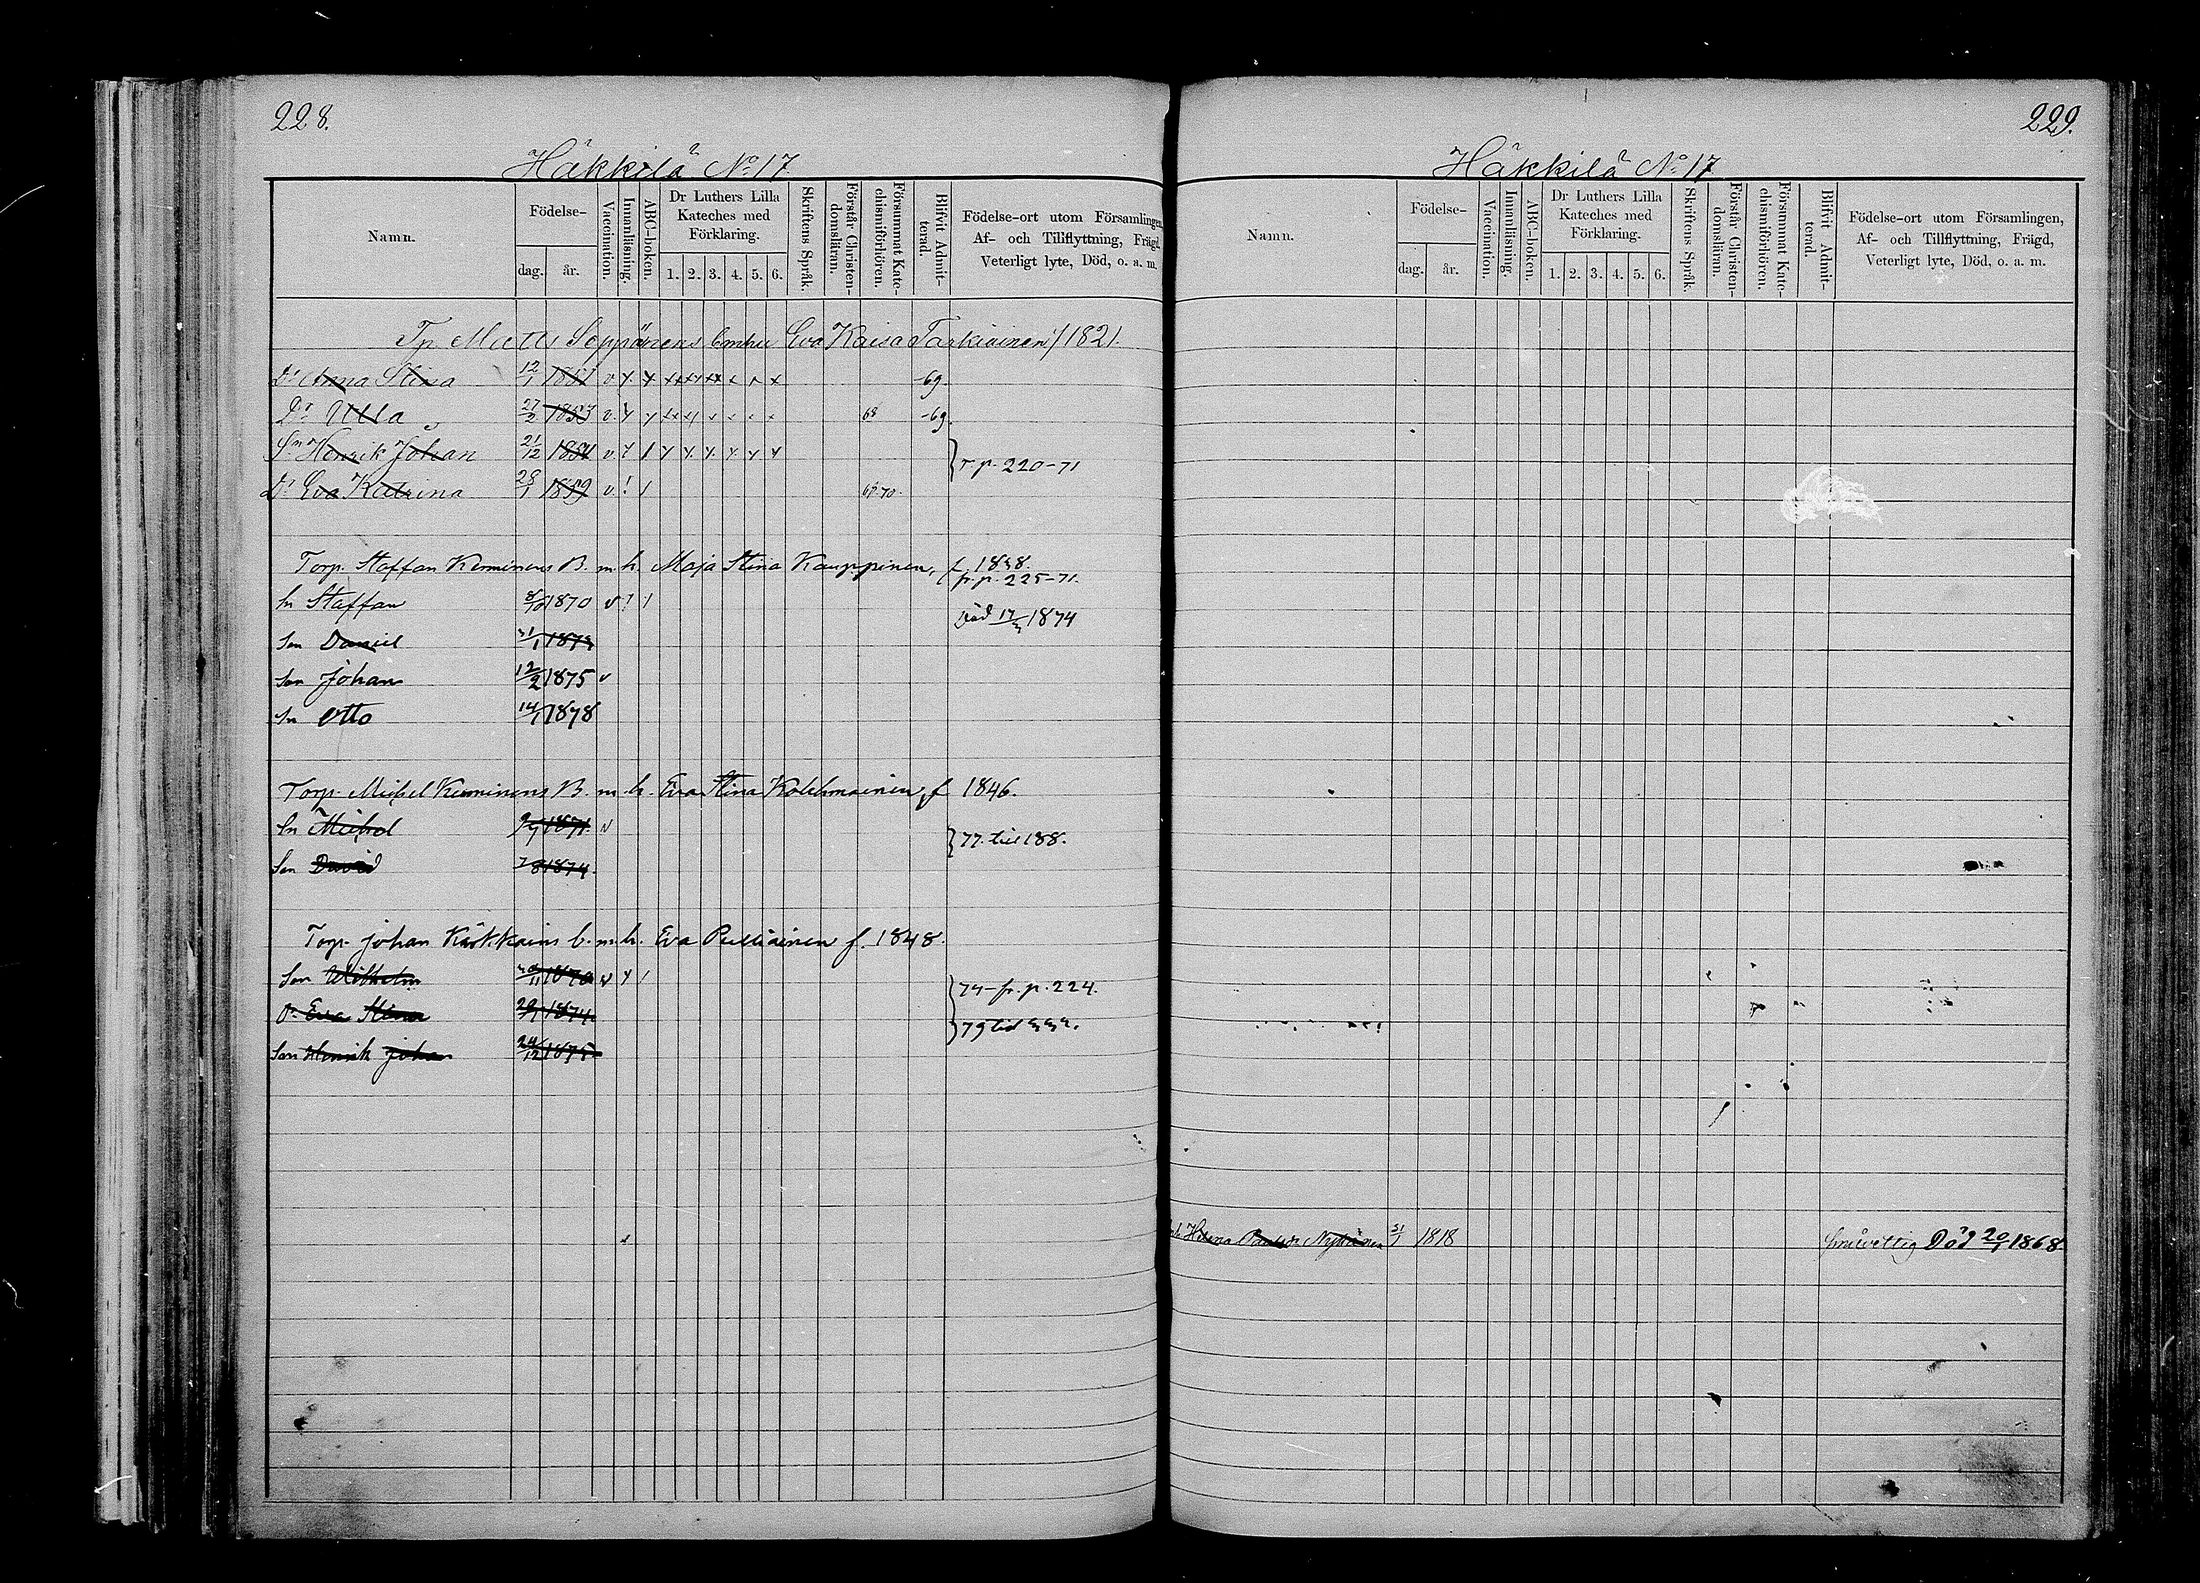 228.
Häkkilä No 17
Namn.
Födelse-
dag.
år.
Vaccination.
Innanläsning.
ABC-boken.
Dr Luthers Lilla
Kateches med
Förklaring.
1. 2. 3. 4. 5. 6.
Skriftens Språk.
Förstår Christen-
domsläran.
Försummat Kate-
chismiförhören.
Blifvit Admit-
terad.
Födelse-ort utom Församlingen,
Af- och Tillflyttning, Frägd,
Veterligt lyte, Död, o. a. m.
Tp Matts Seppänens Eva Kaisa Tarkiainen /1821.
Dr Anna Stina 12/1 1851 v. -69
Dr Ulla 27/2 1853 v. 68 -69.
Sn Henrik Johan 21/12 v.
} r p. 220-71
Dr Eva Katrina 28/1 1859 v ! / 70.
Torp. Staffan B. m. h. Maja Stina Kauppinen, f.
fr. p. 225-71.
Sn Staffan 1870 v
Son Daniel
Död 1874
Son Johan 12/2 1875 v
Sn Otto 14/1 1878
Torp. Michel B. m. h. Eva Stina Kolehmainen, f 1846.
Sn Michel 1871. v
} 77. till 188.
Son David 1874.
Torp. Johan b. m. h. Eva f. 1848.
Son Wilhelm 1870 v
} 74-fr. p. 224.
Dr Eva Stina 1874.
} 79 till
Son Henrik Johan 24/12 1875
229.
Häkkilä No 17
Namn.
Födelse-
dag.
år.
Vaccination.
Innanläsning.
ABC-boken.
Dr Luthers Lilla
Kateches med
Förklaring.
1. 2. 3. 4. 5. 6.
Skriftens Språk.
Förstår Christen-
domsläran.
Försummat Kate-
chismiförhören.
Blifvit Admit-
terad.
Födelse-ort utom Församlingen,
Af- och Tillflyttning, Frägd,
Veterligt lyte, Död, o. a. m.
Helena 31/1 1818 Död 20/1 1868.